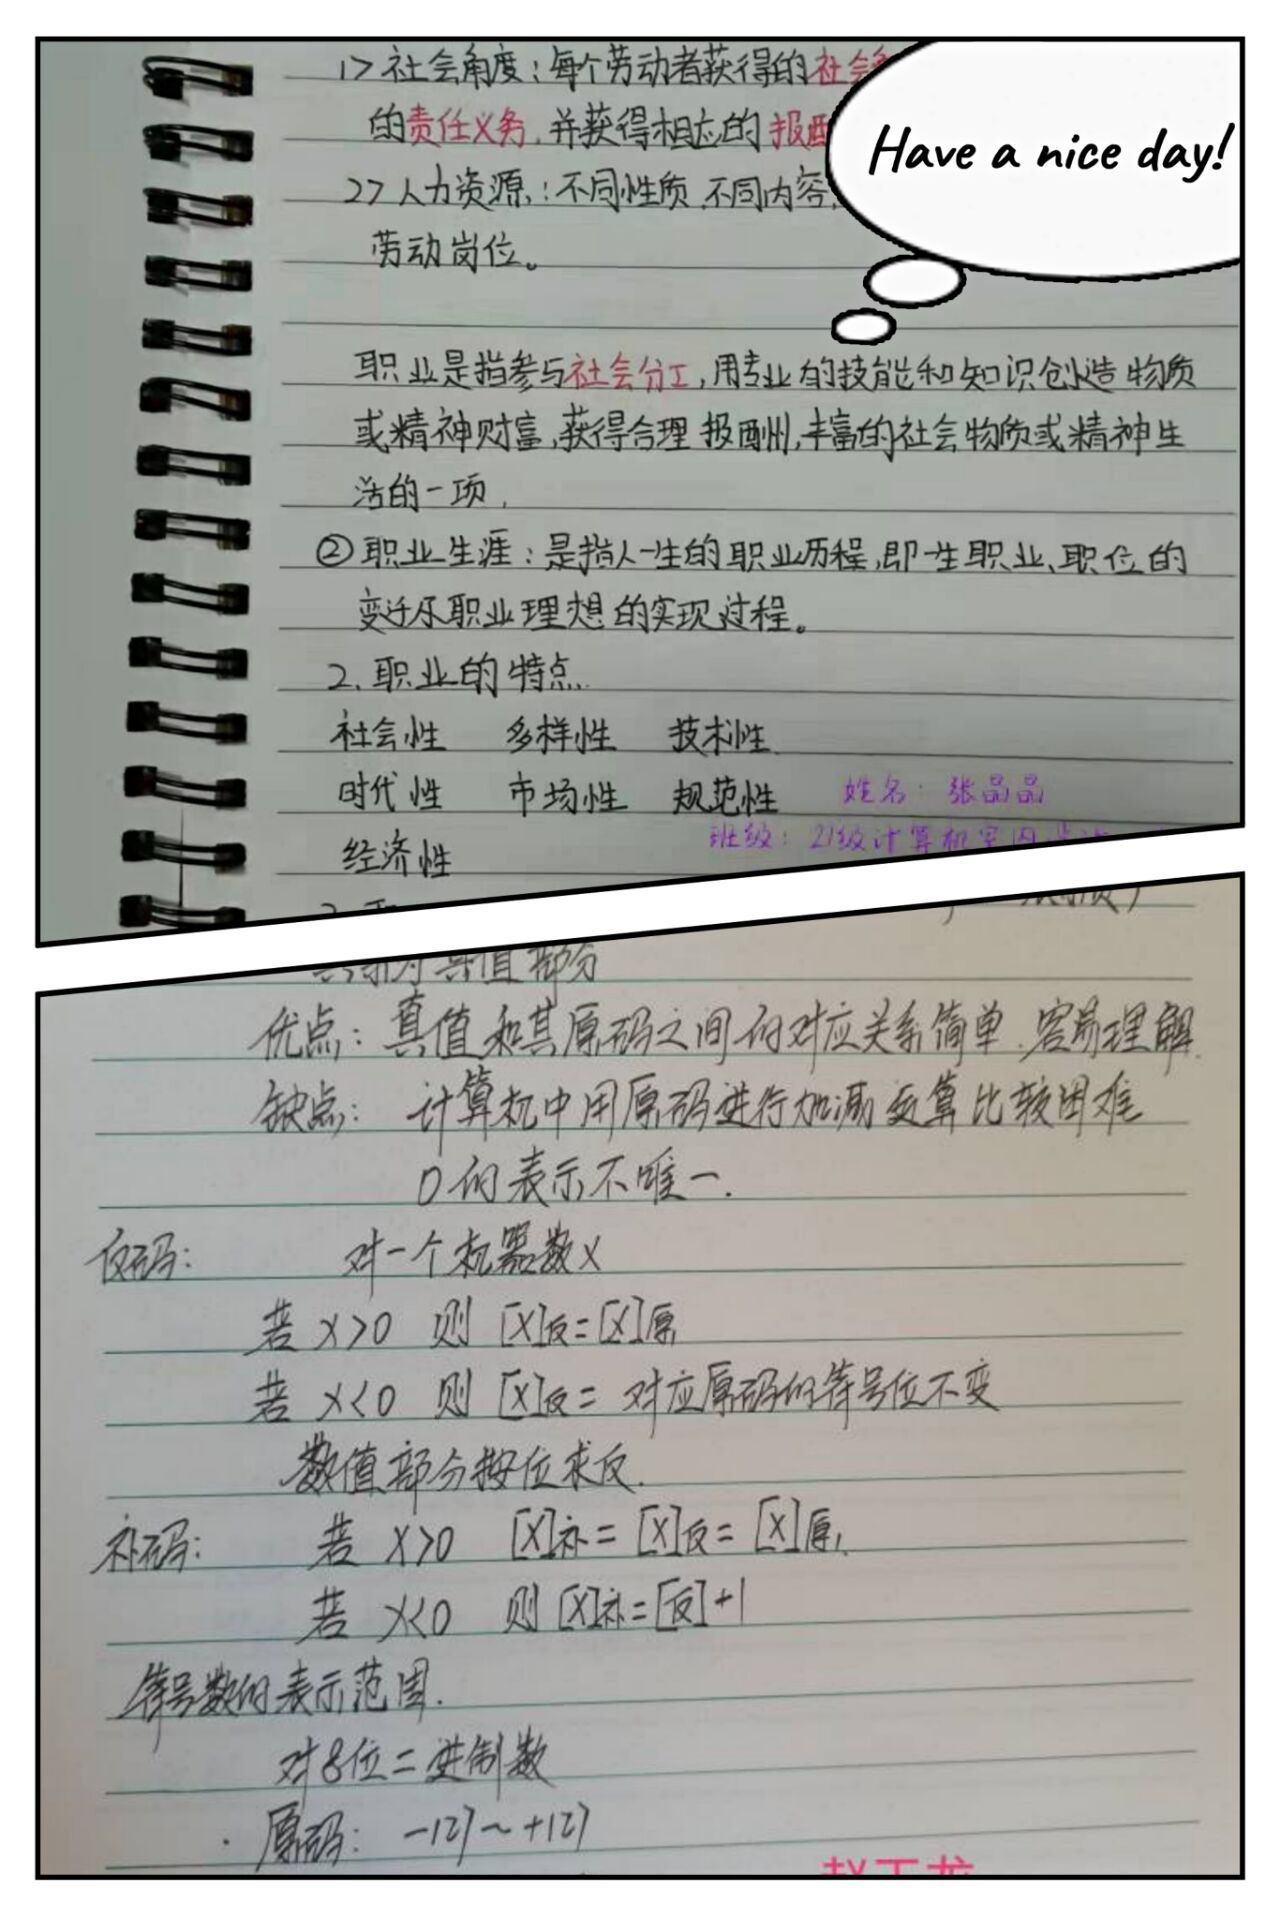 1> 社会角度：每个劳动者获得的社会
的责任义务，并获得相应的报酬
Have a nice day!
2> 人力资源：不同性质，不同内容，
劳动岗位。
职业是指参与社会分工，用专业的技能和知识创造物质
或精神财富，获得合理报酬，丰富的社会物质或精神生
活的一项，
②职业生涯：是指人一生的职业历程，即一生职业、职位的
变迁及职业理想的实现过程。
2. 职业的特点
社会性 多样性 技术性
时代性 市场性 规范性
姓名：张晶晶
班级：21级计算机室内
经济性
真值部分
优点：真值和其原码之间的对应关系简单.容易理解.
缺点：计算机中用原码进行加减运算比较困难
0的表示不唯一.
反码： 对一个机器数X
若 X>0 则 [X]反=[X]原
若 X<0 则 [X]反= 对应原码的符号位不变
数值部分按位求反.
补码： 若 X>0 [X]补=[X]反=[X]原,
若 X<0 则 [X]补=[反]+1
符号数的表示范围.
对8位二进制数
原码：-127～+127